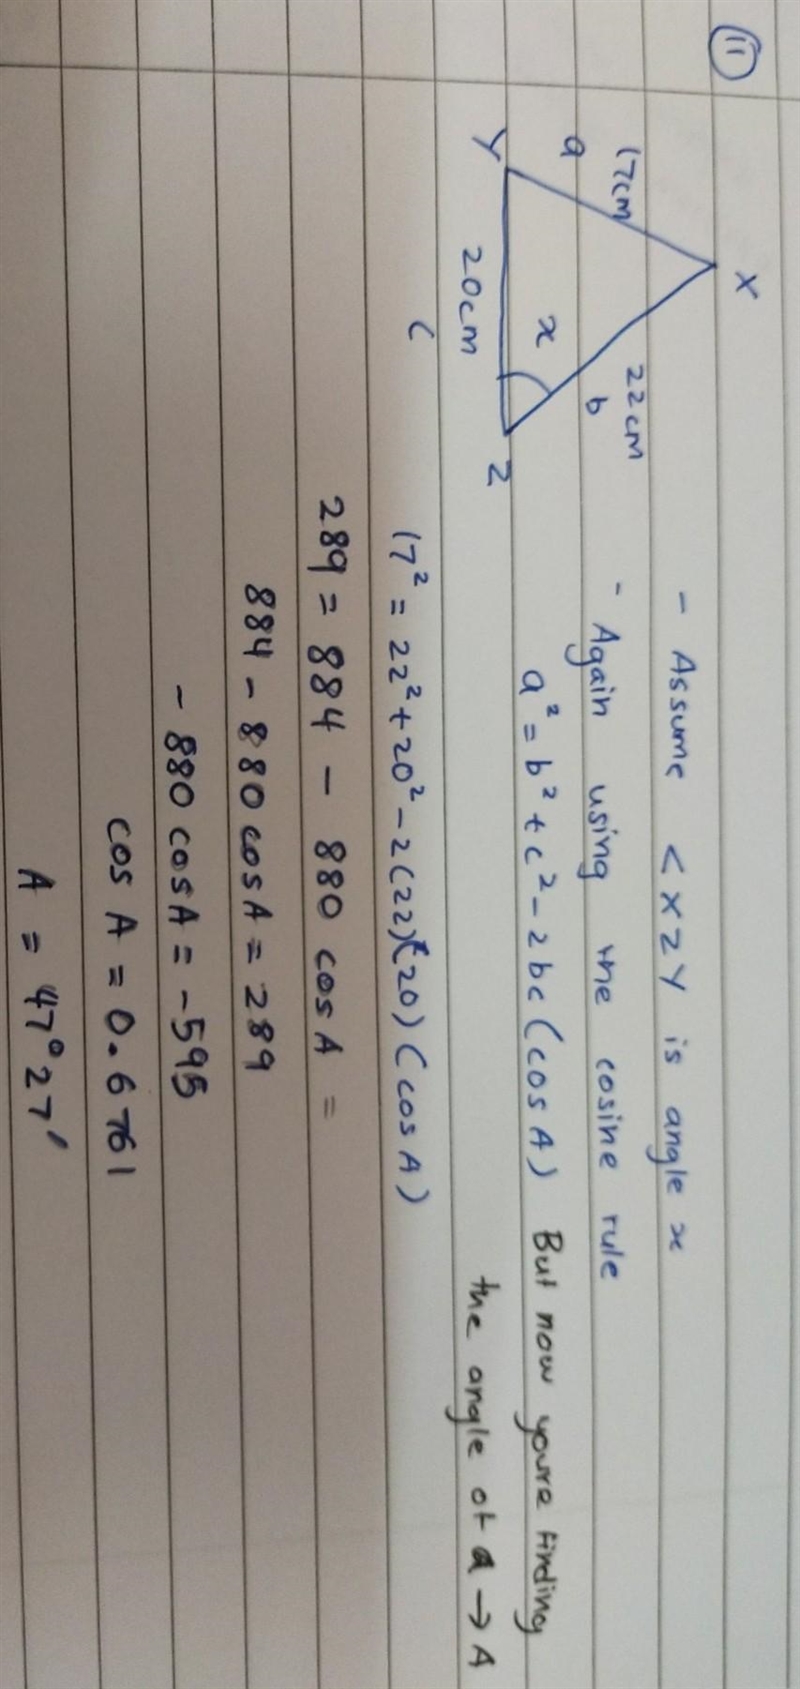 ii
X
17cm
a
22cm
b
x
Y
Z
20cm
c
- Assume <XZY is angle x
- Again using the cosine rule
a² = b² + c² - 2bc (cos A) But now youre finding
the angle of a → A
17² = 22² + 20² - 2(22)(20) (cos A)
289 = 884 - 880 cos A =
884 - 880 cos A = 289
- 880 cos A = -595
cos A = 0.6761
A = 47°27'